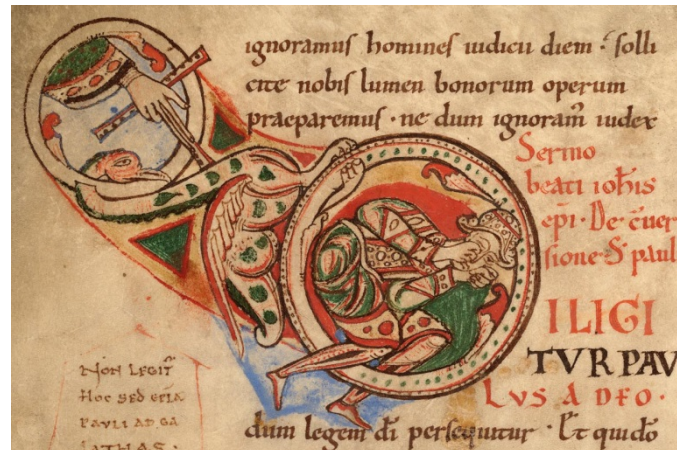 ignoramuſ homineſ iudicii diem ⁖ ſolli
cite nobiſ lumen bonorum operum
praeparemuſ · ne dum ignoram̄ iudex
Sermo
beati ioh̄is
ep̄i · De c̄uer
ſione S paul
ILIGI
TVR PAV
LVS A DEO ·
dum legem dī perſequitur · Et quidō
NON LEGIT̄
HOC SED
PAVLI AD GA
LATHAS ·